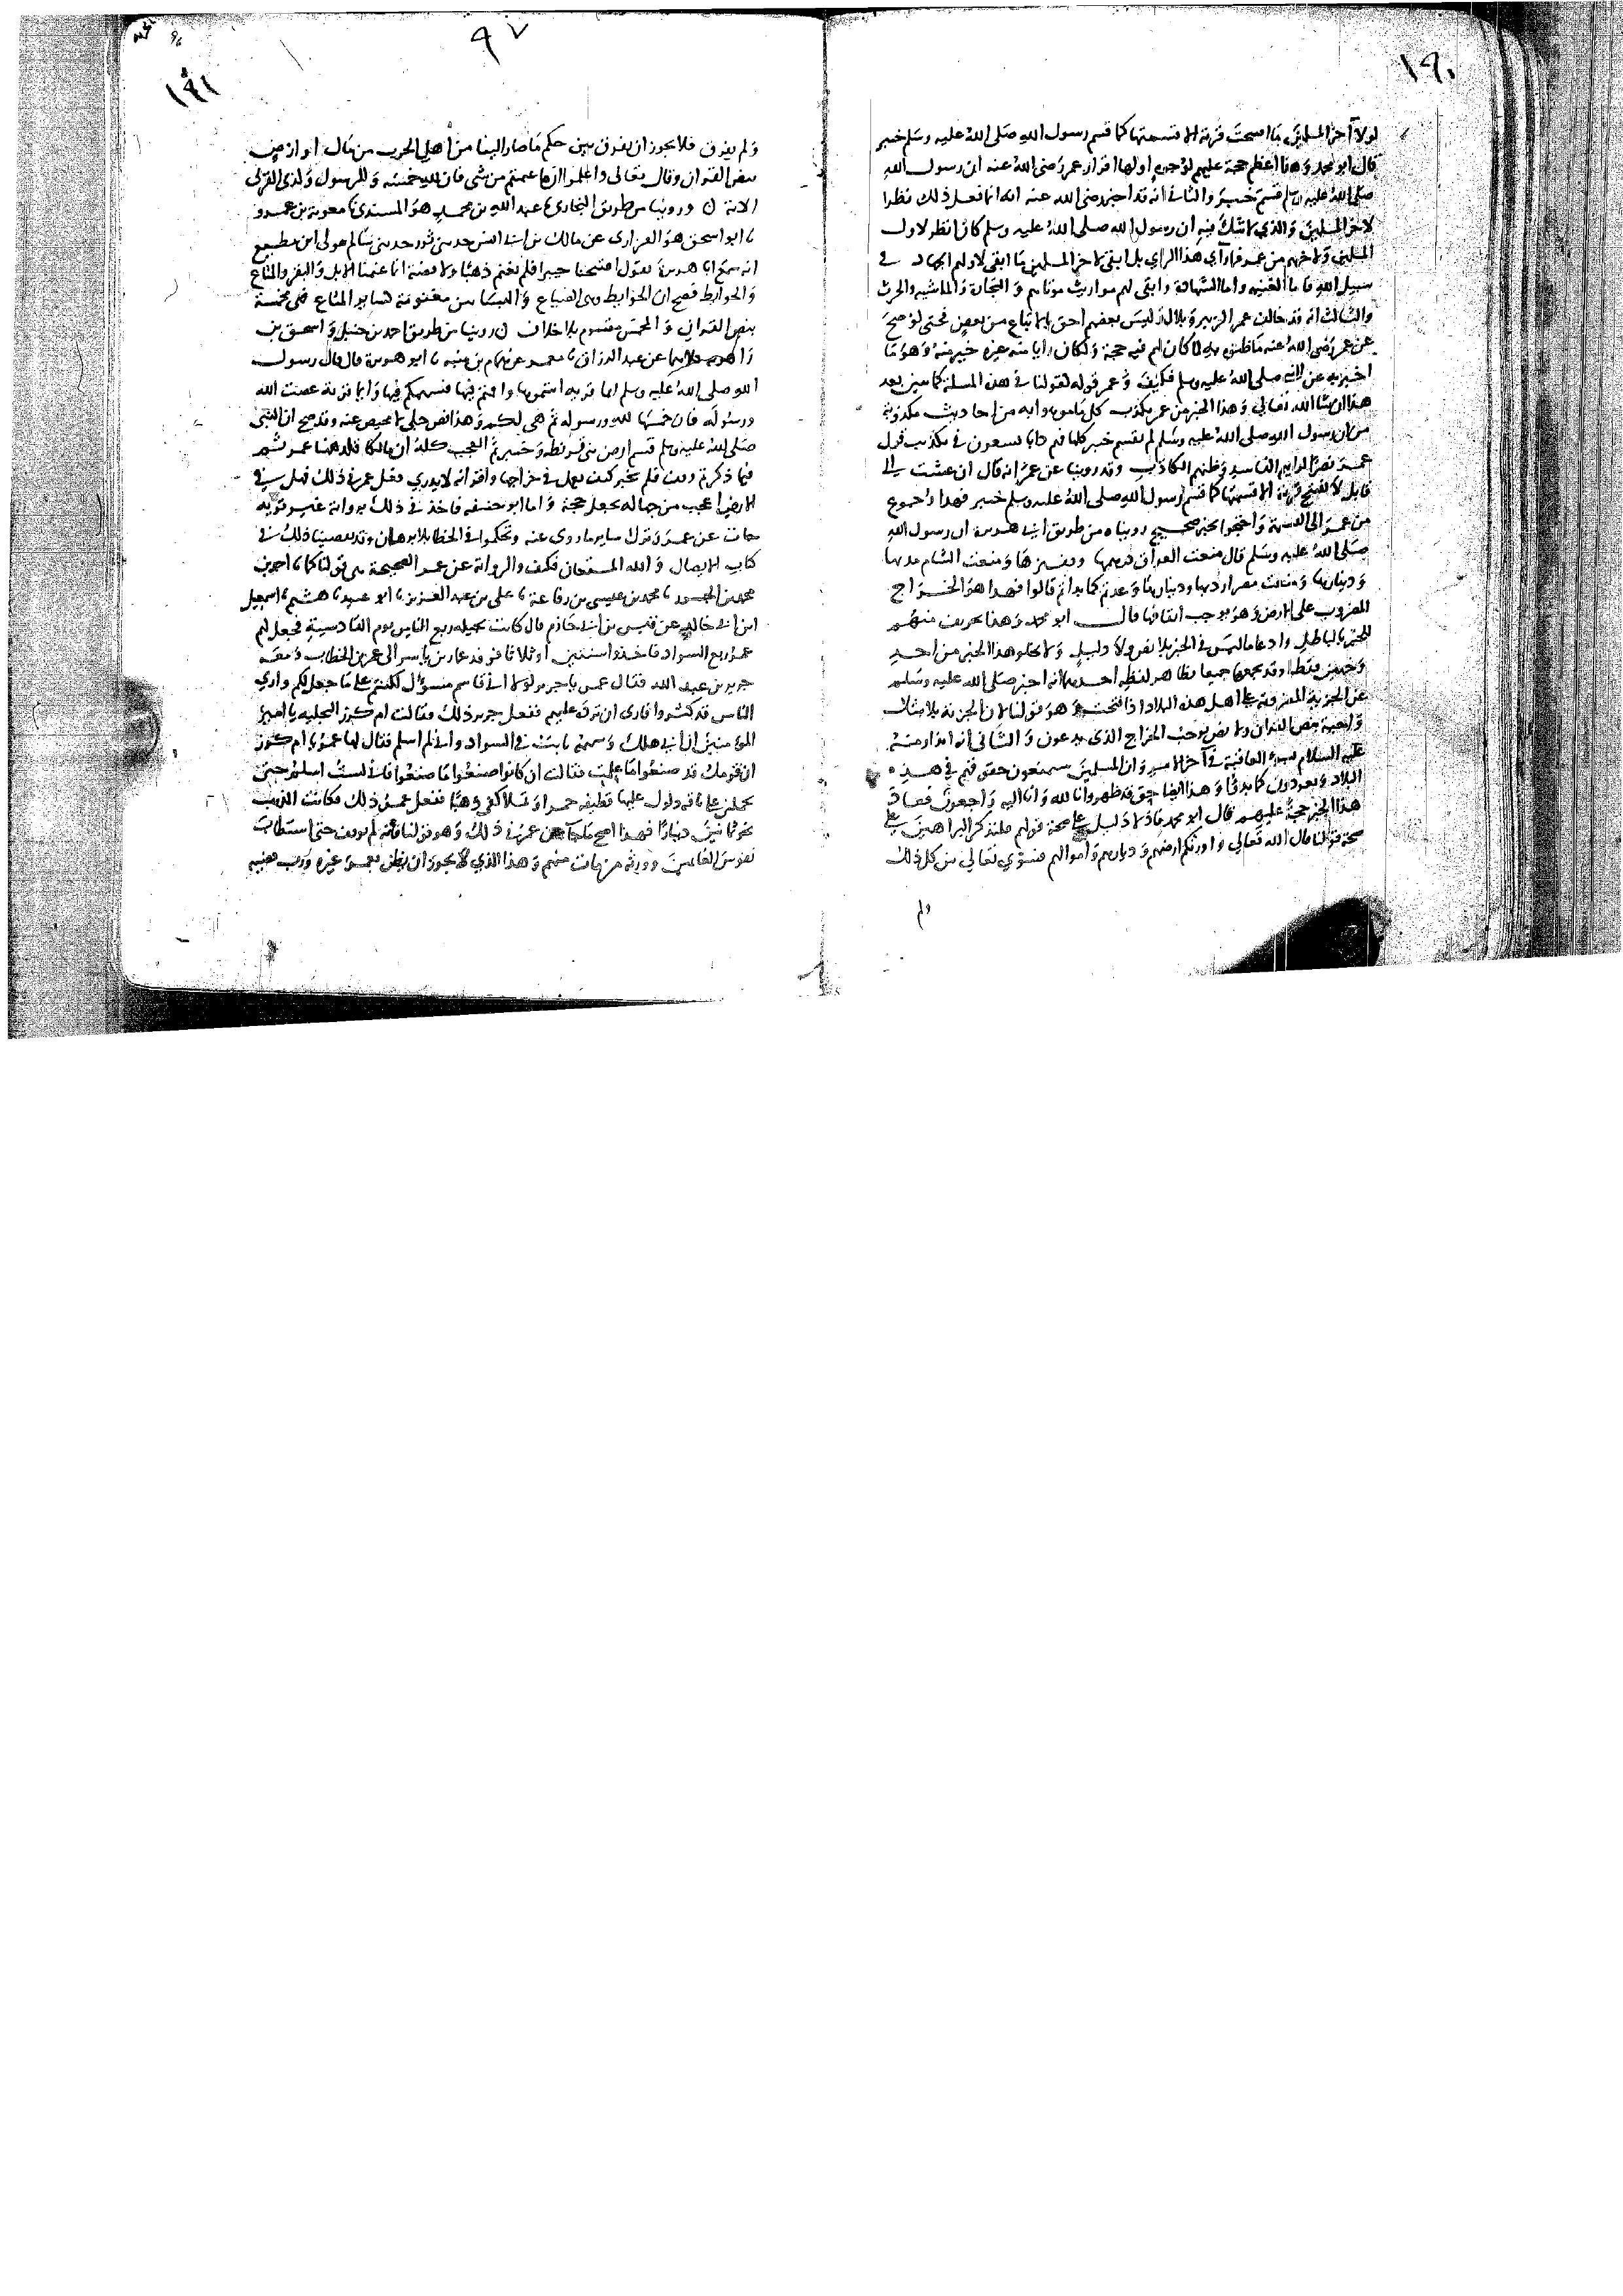 ١٩٠
لولا آخر المسلمين ما افتتحت قرية الا قسمتها كما قسم رسول الله صلى الله عليه وسلم خيبر
قال ابو محمد وهذا أعظم حجة عليهم لوجوه اولها اقرار عمر رضي الله عنه ان رسول الله
صلى الله عليه وسلم قسم خيبر والثاني انه قد اخبر رضي الله عنه انه انما فعل ذلك نظرا
لاخر المسلمين والذي لا شك فيه ان رسول الله صلى الله عليه وسلم كان انظر لاول
المسلمين ولاخرهم من عمر فما رأى هذا الراي بل ابقى لاخر المسلمين ما ابقى لاولهم الجهاد في
سبيل الله فاما الغنيمة واما الشهادة وابقى لهم مواريث موتاهم والتجارة والماشية والحرث
والثالث انه قد خالف عمر الزبير وبلال وليس بعضهم احق بالاتباع من بعض فحتى لو صح
عن عمر رضي الله عنه ما ظنوه به لما كان لهم فيه حجة ولكان رأيا منه غيره خير منه وهو ما
اخبر به عن النبي صلى الله عليه وسلم فكيف وعمر قوله كقولنا في هذه المسلة كما نبين بعد
هذا ان شا الله تعالى وهذا الخبر من عمر يكذب كل ما موهوا به من احاديث مكذوبة
من ان رسول الله صلى الله عليه وسلم لم يقسم خيبر كلها فهم دابا يسعون في تكذيب قول
عمر نصرا لرأيهم الفاسد وظنهم الكاذب وقد روينا عن عمر انه قال ان عشت الى
قابل لا تفتح قرية الا قسمتها كما قسم رسول الله صلى الله عليه وسلم خيبر فهذا رجوع
من عمر الى القسمة واحتجوا بخبر صحيح رويناه من طريق ابي هريرة ان رسول الله
صلى الله عليه وسلم قال منعت العراق درهمها وقفيزها ومنعت الشام مديها
ودينارها ومنعت مصر اردبها ودينارها وعدتم كما بداتم قالوا فهذا هو الخراج
المضروب على الارض وهو يوجب ايقافها قال ابو محمد وهذا تحريف منهم
للخبر بالباطل وادعا ما ليس في الخبر بلا نص ولا دليل ولا يخلو هذا الخبر من احد
وجهين فقط او قد يجمعهما جميعا بظاهر لفظه احدهما انه اخبر صلى الله عليه وسلم
عن الجزية المضروبة على اهل هذه البلاد اذا فتحت وهو قولنا لان الجزية بلا شك
واجبة بنص القرآن ولا نص يوجب الخراج الذي يدعون والثاني أنه انذار منه
عليه السلام بسوء العاقبة في آخر الامر وان المسلمين سيمنعون حقوقهم في هذه
البلاد ويعودون كما بدؤا وهذا ايضا حق قد ظهر وانا لله وانا اليه راجعون فعاد
هذا الخبر حجة عليهم قال ابو محمد فاذ لا دليل على صحة قولهم فلنذكر البراهين على
صحة قولنا قال الله تعالى واورثكم ارضهم وديارهم وأموالهم فسوى تعالى بين كل ذلك
ولم
٩٧
١٩١
ولم يفرق فلا يجوز ان يفرق بين حكم ما صار الينا من أهل الحرب من مال او ارض
بنص القرآن وقال تعالى واعلموا انما غنمتم من شي فان لله خمسه وللرسول ولذي القربى
الاية ن وروينا من طريق البخاري نا عبد الله بن محمد هو المسندي نا معوية بن عمرو
نا ابو اسحق هو الفزاري عن مالك بن انس حدثني ثور حدثني سالم مولى ابن مطيع
انه سمع ابا هريرة يقول افتتحنا خيبر فلم نغنم ذهبا ولا فضة انما غنمنا الابل والبقر والمتاع
والحوايط فصح ان الحوايط وهي الضياع والبساتين مغنومة كساير المتاع فهي مخمسة
بنص القرآن والمخمس مقسوم بلا خلاف ن روينا من طريق احمد بن حنبل واسحق بن
راهويه كلاهما عن عبد الرزاق نا معمر عن همام بن منبه نا ابو هريرة قال قال رسول
الله صلى الله عليه وسلم ايما قرية اتيتموها واقمتم فيها فسهمكم فيها وايما قرية عصت الله
ورسوله فان خمسها لله ورسوله ثم هي لكم وهذا نص جلي لا محيص عنه وقد صح ان النبي
صلى الله عليه وسلم قسم ارض بني قريظة وخيبر ثم العجب كله أن مالكا قلد هنا عمر ثم
فيما ذكرتم وقف فلم يخبر كيف يعمل في خراجها واقر انه لا يدري فعل عمر في ذلك فهل في
الارض اعجب من جهالة تجعل حجة واما ابو حنيفة فاخذ في ذلك برواية غير قوية
جات عن عمر وترك ساير ما روي عنه وتحكموا في الخطا بلا برهان وقد تقصينا ذلك في
كتاب الايصال والله المستعان فكيف والرواية عن عمر الصحيحة هي قولنا كما نا احمد بن
محمد بن الجسور نا محمد بن عيسى بن رفاعة نا علي بن عبد العزيز نا ابو عبيد نا هشيم نا اسمعيل
ابن ابي خالد عن قيس بن أبي حازم قال كانت بجيلة ربع الناس يوم القادسية فجعل لهم
عمر ربع السواد فاخذوا سنتين أو ثلاثا فوفد عمار بن ياسر الى عمر بن الخطاب ومعه
جرير بن عبد الله فقال عمر يا جرير لولا اني قاسم مسؤل لكنتم على ما جعل لكم وارى
الناس قد كثروا فارى ان ترده عليهم ففعل جرير ذلك فقالت ام كرز البجلية يا امير
المؤمنين ان أبي هلك وسهمه ثابت في السواد وأني لم اسلم فقال لها عمر يا ام كرز
ان قومك قد صنعوا ما علمت فقالت ان كانوا صنعوا ما صنعوا فاني لست اسلم حتى
تحملني على ناقة ذلول عليها قطيفة حمرا وتملا كفي ذهبا ففعل عمر ذلك فكانت الذهب
نحو ثمانين دينارا فهذا اصح ما جا عن عمر في ذلك وهو قولنا فانه لم يوقف حتى استطاب
نفوس الغانمين وورثة من مات منهم وهذا الذي لا يجوز ان يظن بعمر غيره